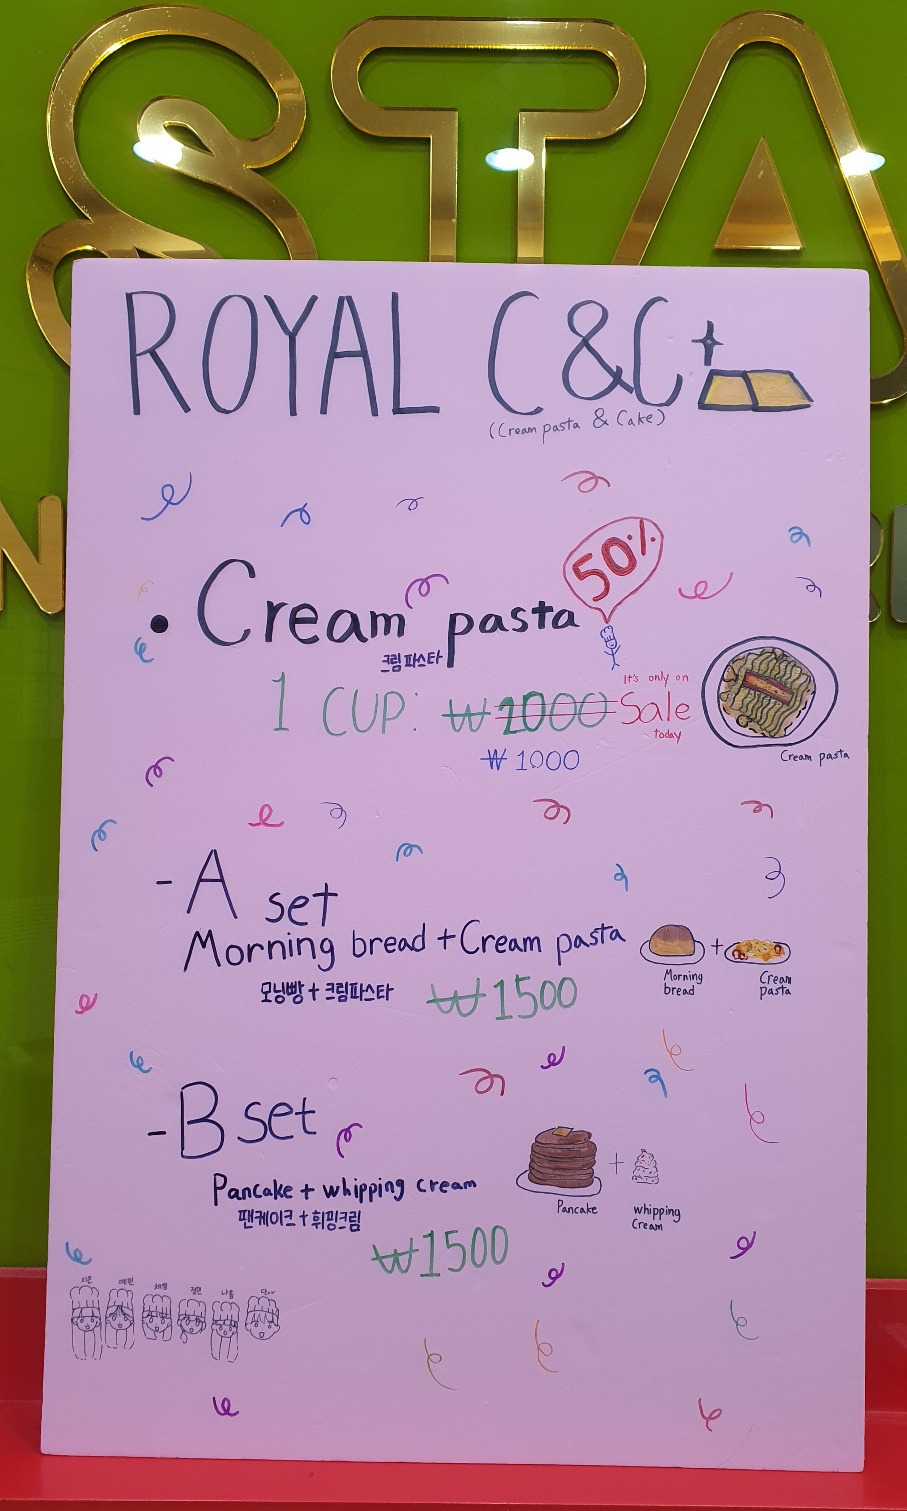 STA
ROYAL C&C
(Cream pasta & Cake)
50%
• Cream pasta
크림파스타
1 CUP: ₩2000
It's only on
Sale
today
₩1000
Cream pasta
- A set
Morning bread + Cream pasta
모닝빵 + 크림파스타
₩1500
Morning bread
+
Cream pasta
- B set
Pancake + whipping cream
팬케이크 + 휘핑크림
₩1500
Pancake
+
whipping Cream
지은
예린
나윰